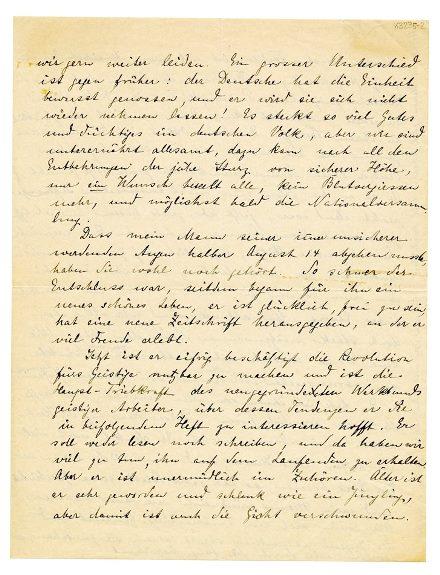 63235-2
wir gern weiter leiden. Ein grosser Unterschied
ist gegen früher: der Deutsche hat die Einheit
bewusst genossen, und er wird sie sich nicht
wieder nehmen lassen! Es steckt so viel Gutes
und Tüchtiges im deutschen Volk, aber wir sind
unterernährt allesamt, dazu kam nach all den
Entbehrungen der jähe Sturz von sicherer Höhe,
nur ein Wunsch beseelt alle, kein Blutvergiessen
mehr, und möglichst bald die Nationalversamm
lung.
Dass mein Mann seiner immer unsicherer
werdenden Augen halber August 14 abgehen musste,
haben Sie wohl noch gehört. So schwer der
Entschluss war, seitdem begann für ihn ein
neues schönes Leben, er ist glücklich, frei zu sein
hat eine neue Zeitschrift herausgegeben, an der er
viel Freude erlebt.
Jetzt ist er eifrig beschäftigt die Revolution
fürs Geistige nutzbar zu machen und ist die
Haupt-Triebkraft des neugegründeten Werkbunds
geistiger Arbeiter, über dessen Tendenzen er Sie
in beifolgendem Heft zu interessieren hofft. Er
soll weder lesen noch schreiben, und da haben wir
viel zu tun, ihn auf dem Laufenden zu erhalten
Aber er ist unermüdlich im Zuhören. Älter ist
er sehr geworden und schlank wie ein Jüngling,
aber damit ist auch die Gicht verschwunden.